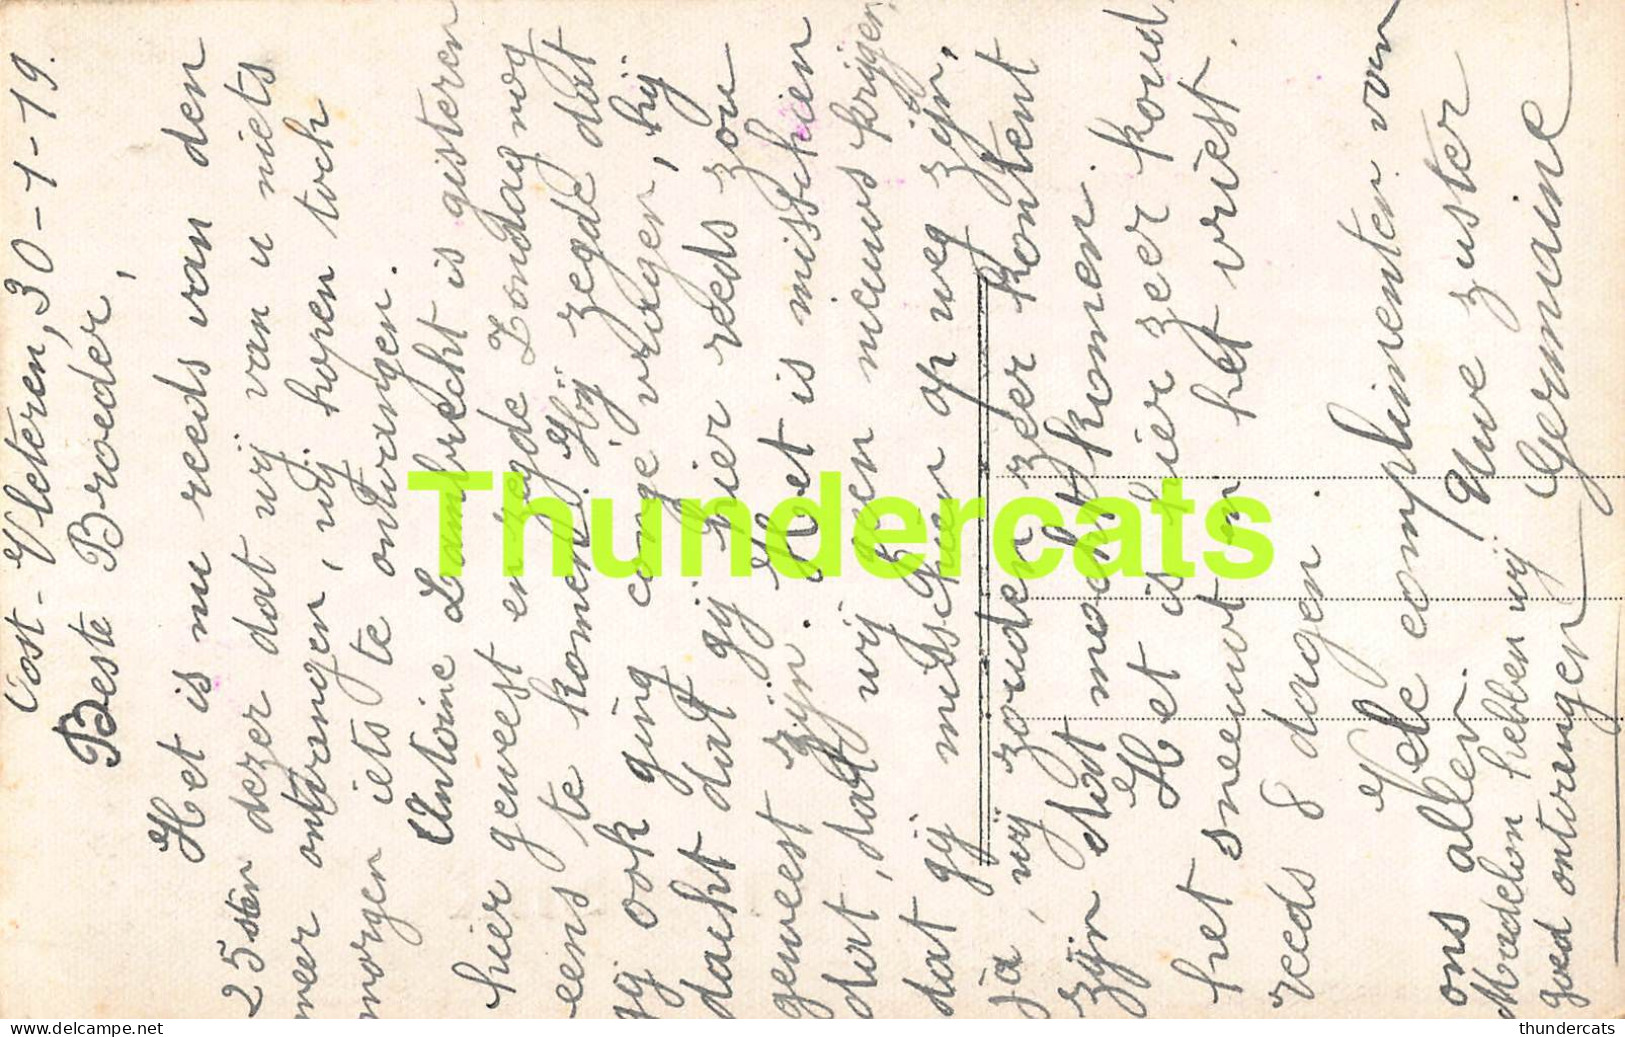 Oost-Vleteren, 30-1-19.
Beste Broeder,
Het is nu reeds van den
25sten dezer dat wij van u niets
meer ontvangen, wij hopen toch
morgen iets te ontvangen.
Antoine Lambrecht is gisteren
hier geweest en zegde Zondag nog
eens te komen. Hij zegde dat
gij ook ging congé vragen, hij
dacht dat gij hier reds zou
geweest zijn. Het is misschien
dat, dat wij geen nieuws krijgen,
dat gij misschien op weg zijn,
ja, wij zouden zeer kontent
zijn dat mocht komen.
Het is hier zeer koud,
het sneeuwt en het vriest.
reeds 8 dagen
Vele complimenten van
ons allen. Uwe zuster
Madelon hebben wij Germaine
goed ontvangen
Thundercats
thundercats
www.delcampe.net